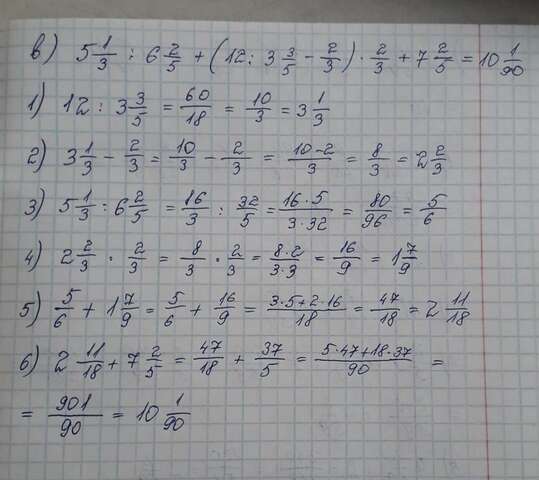 в) 5 1/3 : 6 2/5 + (12 : 3 3/5 - 2/3) · 2/3 + 7 2/5 = 10 1/90
1) 12 : 3 3/5 = 60/18 = 10/3 = 3 1/3
2) 3 1/3 - 2/3 = 10/3 - 2/3 = 10-2/3 = 8/3 = 2 2/3
3) 5 1/3 : 6 2/5 = 16/3 : 32/5 = 16·5/3·32 = 80/96 = 5/6
4) 2 2/3 · 2/3 = 8/3 · 2/3 = 8·2/3·3 = 16/9 = 1 7/9
5) 5/6 + 1 7/9 = 5/6 + 16/9 = 3·5+2·16/18 = 47/18 = 2 11/18
6) 2 11/18 + 7 2/5 = 47/18 + 37/5 = 5·47+18·37/90 =
= 901/90 = 10 1/90